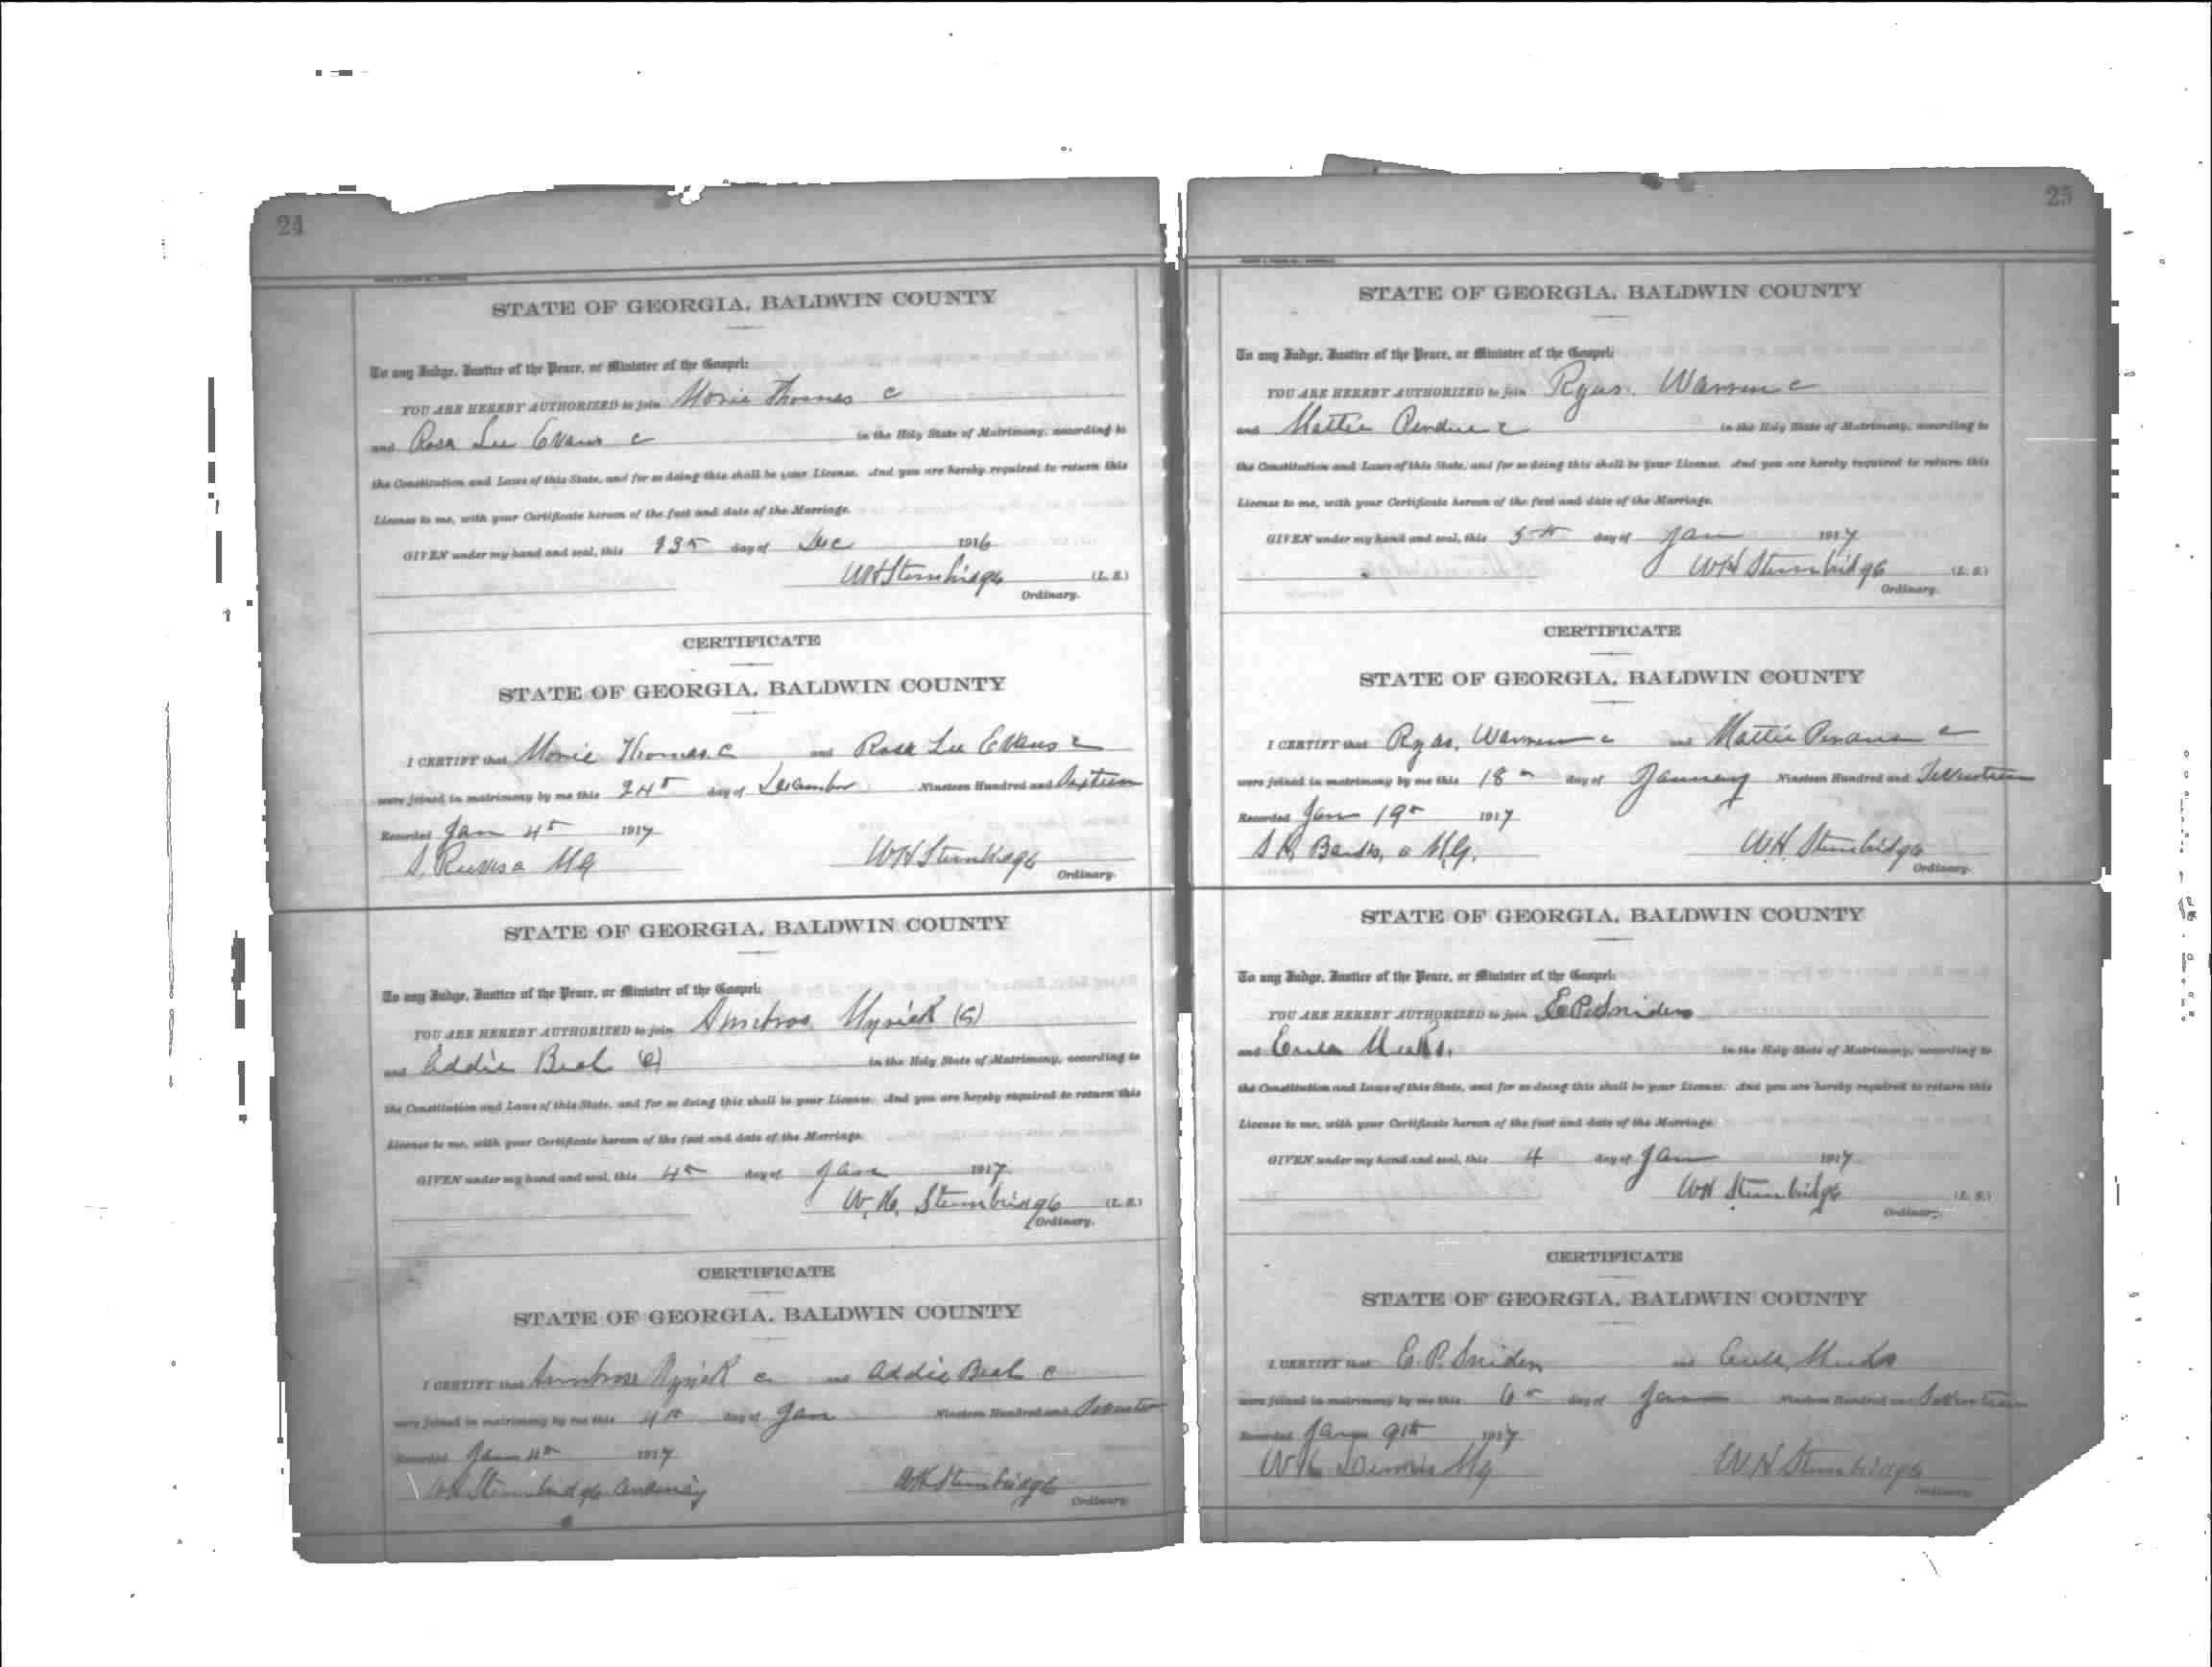 24
STATE OF GEORGIA. BALDWIN COUNTY
To any Judge, Justice of the Peace, or Minister of the Gospel:
YOU ARE HEREBY AUTHORIZED to join Morie Thomas c
and Rosa Lee Evans c in the Holy State of Matrimony, according to
the Constitution and Laws of this State, and for so doing this shall be your License. And you are hereby required to return this
License to me, with your Certificate hereon of the fact and date of the Marriage.
GIVEN under my hand and seal, this 23 day of Dec 1916
WH Stembridge (L. S.)
Ordinary.
CERTIFICATE
STATE OF GEORGIA. BALDWIN COUNTY
I CERTIFY that Morie Thomas. c and Rosa Lee Evans c
were joined in matrimony by me this 24 day of December Nineteen Hundred and Sixteen
Recorded Jan 4 1917
S. MG WH Stembridge
Ordinary.
STATE OF GEORGIA. BALDWIN COUNTY
To any Judge, Justice of the Peace, or Minister of the Gospel:
YOU ARE HEREBY AUTHORIZED to join Myrick (C)
and Addie Beal (C) in the Holy State of Matrimony, according to
the Constitution and Laws of this State, and for so doing this shall be your License. And you are hereby required to return this
License to me, with your Certificate hereon of the fact and date of the Marriage.
GIVEN under my hand and seal, this 4th day of Jan 1917
W. H. Stembridge (L. S.)
Ordinary.
CERTIFICATE
STATE OF GEORGIA. BALDWIN COUNTY
I CERTIFY that Ambrose Myrick c. and Addie Beal c
were joined in matrimony by me this 4th day of Jan Nineteen Hundred and
Recorded Jan 4th 1917
WH Stembridge Ordinary WH Stembridge
Ordinary.
25
STATE OF GEORGIA. BALDWIN COUNTY
To any Judge, Justice of the Peace, or Minister of the Gospel:
YOU ARE HEREBY AUTHORIZED to join Ryas. Warren c
and Mattie Perdue c in the Holy State of Matrimony, according to
the Constitution and Laws of this State, and for so doing this shall be your License. And you are hereby required to return this
License to me, with your Certificate hereon of the fact and date of the Marriage.
GIVEN under my hand and seal, this 5th day of Jan 1917
WH Stembridge (L. S.)
Ordinary.
CERTIFICATE
STATE OF GEORGIA. BALDWIN COUNTY
I CERTIFY that Ryas. Warren c and Mattie c
were joined in matrimony by me this 18 day of January Nineteen Hundred and Seventeen
Recorded Jan 19 1917
S H. Banks, c M.G. W.H. Stembridge
Ordinary.
STATE OF GEORGIA. BALDWIN COUNTY
To any Judge, Justice of the Peace, or Minister of the Gospel:
YOU ARE HEREBY AUTHORIZED to join E.P. Sniders
and Eula Meeks. in the Holy State of Matrimony, according to
the Constitution and Laws of this State, and for so doing this shall be your License. And you are hereby required to return this
License to me, with your Certificate hereon of the fact and date of the Marriage.
GIVEN under my hand and seal, this 4 day of Jan 1917
WH Stembridge (L. S.)
Ordinary.
CERTIFICATE
STATE OF GEORGIA. BALDWIN COUNTY
I CERTIFY that E. P. Sniders and Eula Meeks
were joined in matrimony by me this 6 day of Jan Nineteen Hundred and Seventeen
Recorded Jan 9th 1917
MG WH Stembridge
Ordinary.